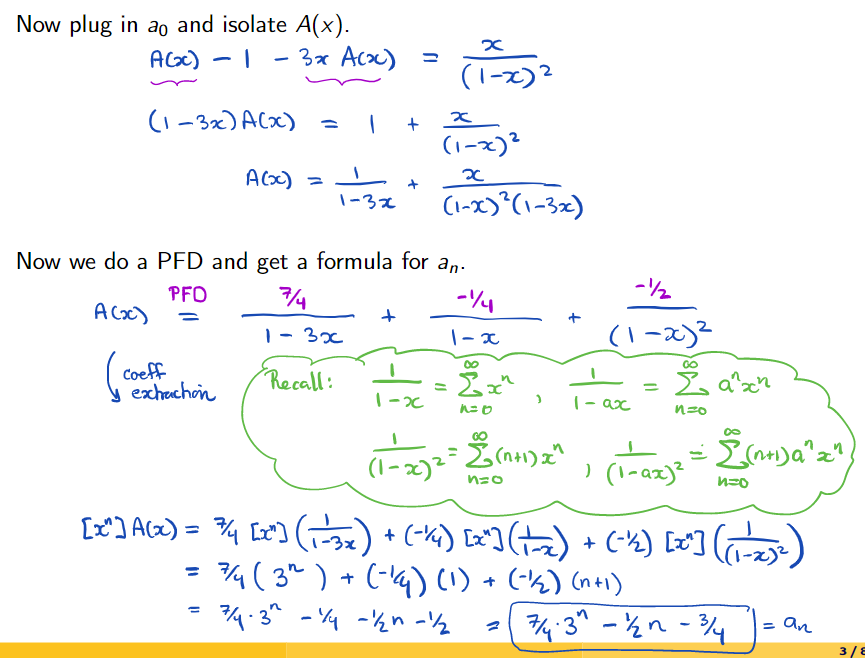 Now plug in a₀ and isolate A(x).
A(x) − 1 − 3x A(x) = x/(1−x)²
(1−3x)A(x) = 1 + x/(1−x)²
A(x) = 1/(1−3x) + x/((1−x)²(1−3x))
Now we do a PFD and get a formula for aₙ.
A(x) PFD = (7/4)/(1−3x) + (−1/4)/(1−x) + (−1/2)/(1−x)²
coeff
extraction
Recall: 1/(1−x) = ∑_{n=0}^{∞} xⁿ , 1/(1−ax) = ∑_{n=0}^{∞} aⁿxⁿ
1/(1−x)² = ∑_{n=0}^{∞} (n+1)xⁿ , 1/(1−ax)² = ∑_{n=0}^{∞} (n+1)aⁿxⁿ
[xⁿ]A(x) = 7/4 [xⁿ](1/(1−3x)) + (−1/4) [xⁿ](1/(1−x)) + (−1/2) [xⁿ](1/(1−x)²)
= 7/4(3ⁿ) + (−1/4)(1) + (−1/2)(n+1)
= 7/4·3ⁿ − 1/4 − 1/2n − 1/2 = 7/4·3ⁿ − 1/2n − 3/4 = aₙ
3 / 8